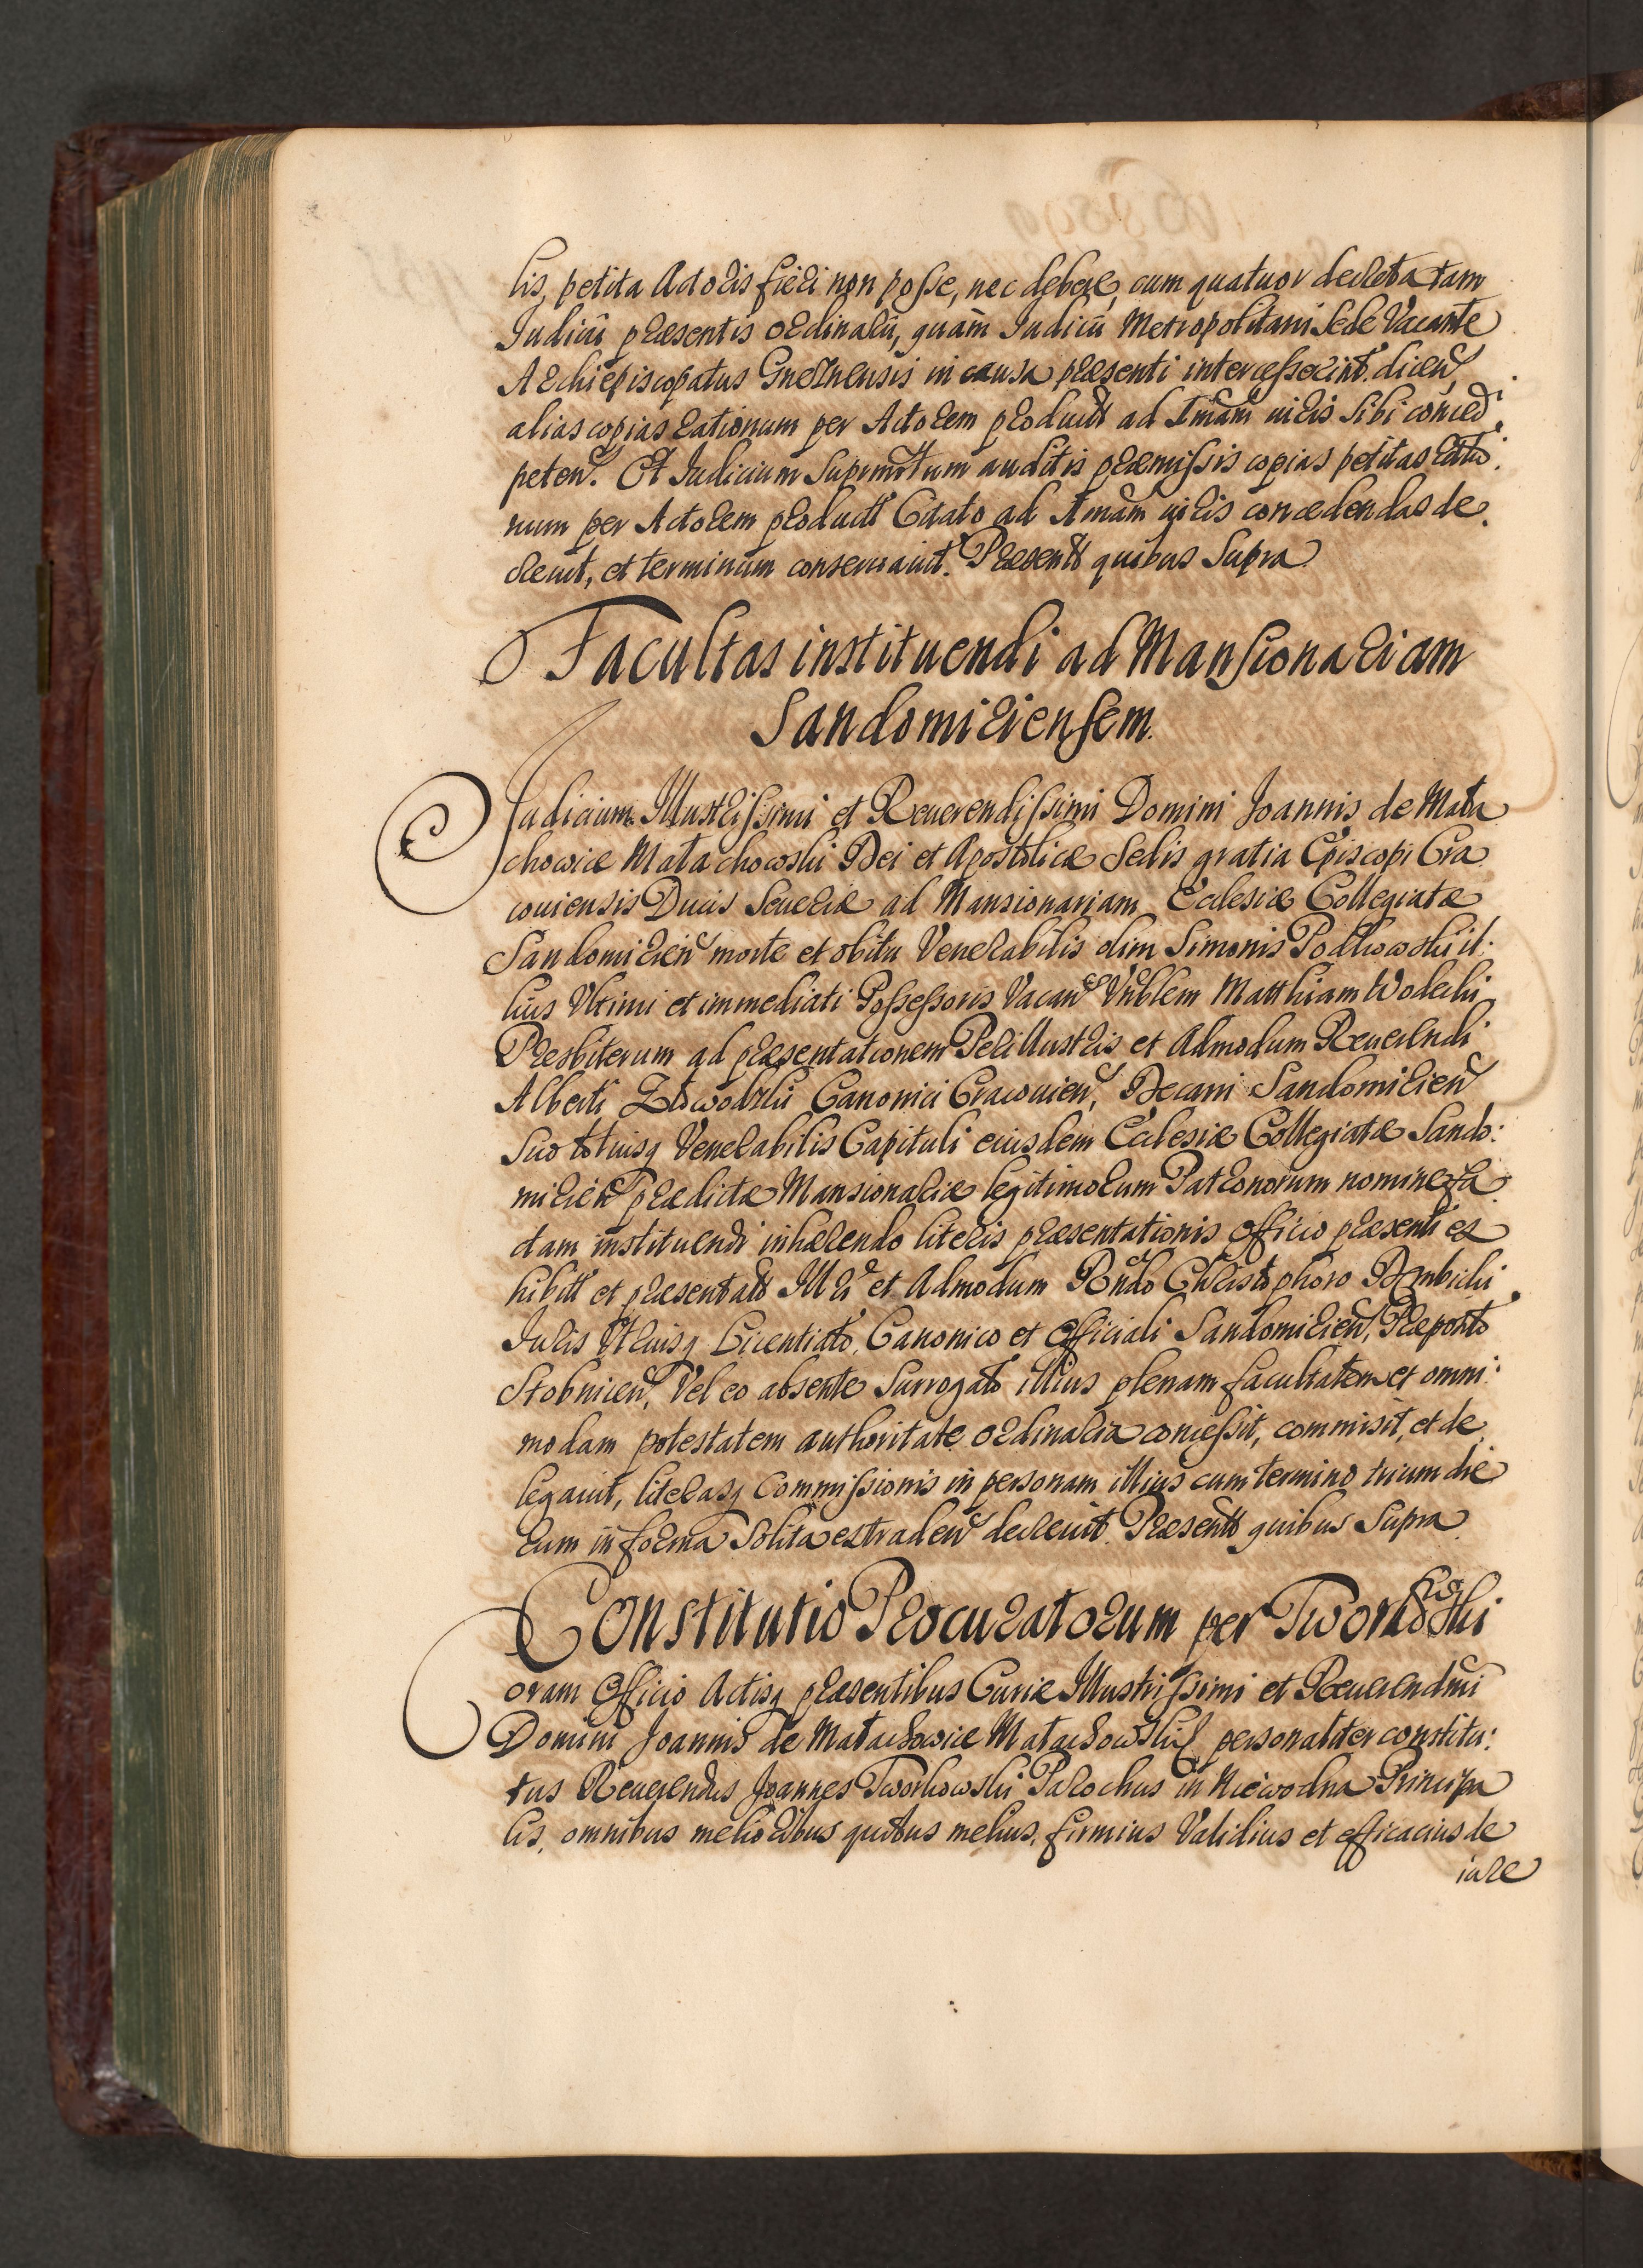 lis, petita Actoris fieri non posse, nec debere, cum quatuor decreta tam
Iudicii præsentis ordinarii, quam Iudicii Metropolitani Sede Vacante
Archiepiscopatus Gneznensis in causa præsenti intercesserint. dicen̄,
alias copias rationum per Actorem product̄ ad Imam̄ iuris sibi conced̄i
peten̄. Et Iudicium Supinotum auditis præmissis copias petitas ratio:
num per Actorem product̄ Citato ad Imam̄ iuris concedendas de
creuit, et terminum conseruauit. Præsent̄ quibus Supra
Facultas instituendi ad Mansionariam
Sandomiriensem.
Iudicium Illustrissimi et Reuerendissimi Domini Joannis de Mała
chowice Małachowski Dei et Apostolicæ Sedis gratia Episcopi Cra
couiensis Ducis Seueriæ ad Mansionariam Ecclesiæ Collegiatæ
Sandomirien̄ morte et obitu Venerabilis olim Simonis Podkowski il:
lius Vltimi et immediati Possessoris Vacan̄ Vn̄blem Matthiam Wodecki
Presbiterum ad præsentationem Perillustris et Admodum Reuerendi
Alberti Canonici Cracouien̄, Decani Sandomirien̄
Suo totiusq Venerabilis Capituli eiusdem Ecclesiæ Collegiatæ Sando:
mirien̄ prædictæ Mansionariæ legitimorum Patronorum nomine fa
ctam instituendi inhærendo literis præsentationis Officio præsenti ex
hibit̄ et præsentat̄ Illri et Admodum Rn̄do Christophoro Dembicki
Iuris Vtriusq Licentiato, Canonico et Officiali Sandomirien̄, Præposito
Stobnicen̄, Vel eo absente Surrogato illius plenam facultatem et omni:
modam potestatem authoritate ordinaria concessit, commisit, et de
legauit, literasq Commissionis in personam illius cum termino trium die
rum in forma Solita extraden̄ decreuit. Præsent̄ quibus Supra
Constitutio Procuratorum per Tworkowski
Coram Officio Actisq præsentibus Curiæ Illustrissimi et Reuerendmi
Domini Joannis de Małachowice Małachowski personaliter constitu:
tus Reuerendus Joannes Tworkowski Parochus in Niewodna Principa
lis, omnibus melioribus quibus melius, firmius Validius et efficacius de
iure